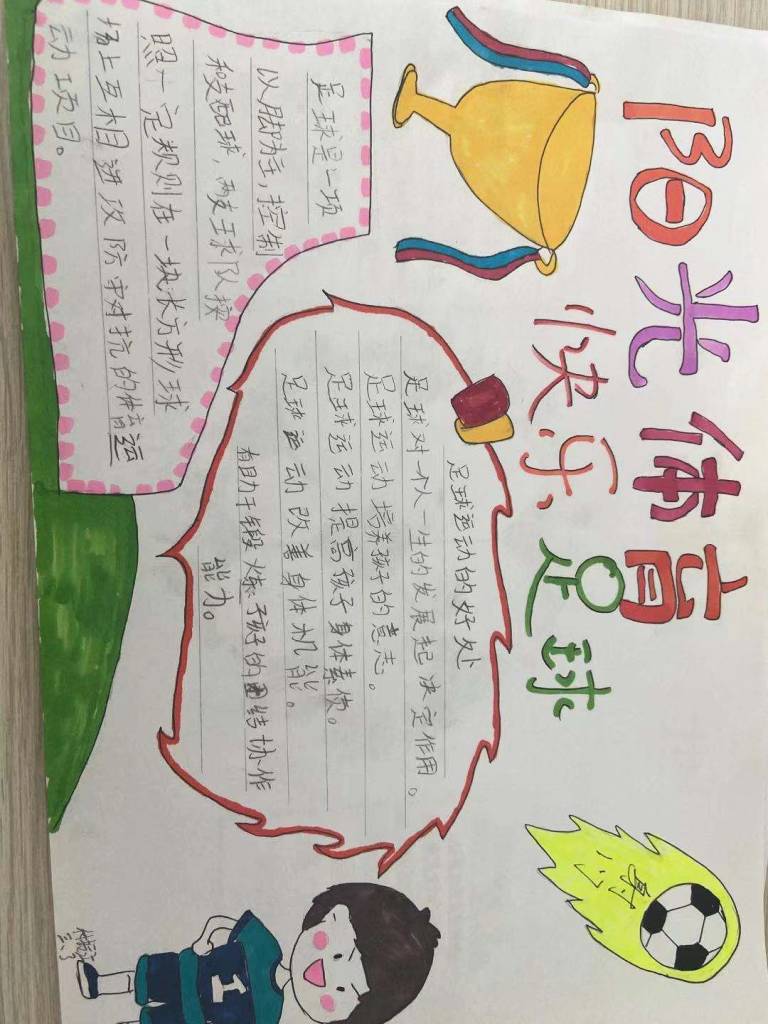 阳光体育
快乐足球
足球是一项
以脚为主，控制
和支配球，两支球队按
照一定规则在一块长方形球
场上互相进攻防守对抗的体育运
动项目。
足球运动的好处
足球对一个人一生的发展起决定作用。
足球运动培养孩子的意志。
足球运动提高孩子身体素质。
足球运动改善身体机能。
有助于锻炼孩子的团结协作
能力。
射门